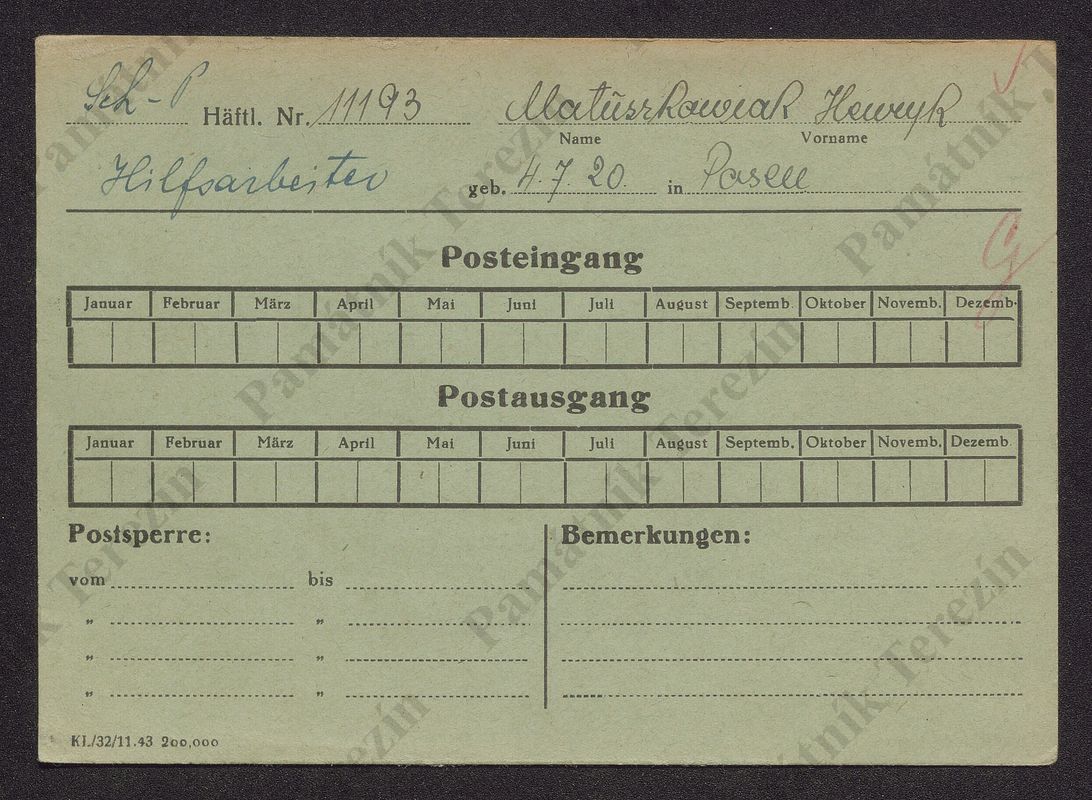 Sch-P Häftl. Nr. 11193 Matuszkowiak Henryk
Name Vorname
Hilfsarbeiter geb. 4.7.20. in Posen
Posteingang
Januar Februar März April Mai Juni Juli August Septemb. Oktober Novemb. Dezemb.
Postausgang
Januar Februar März April Mai Juni Juli August Septemb. Oktober Novemb. Dezemb.
Postsperre: Bemerkungen:
vom bis
„ „
„ „
„ „
KL/32/11.43 200,000
Památník Terezín